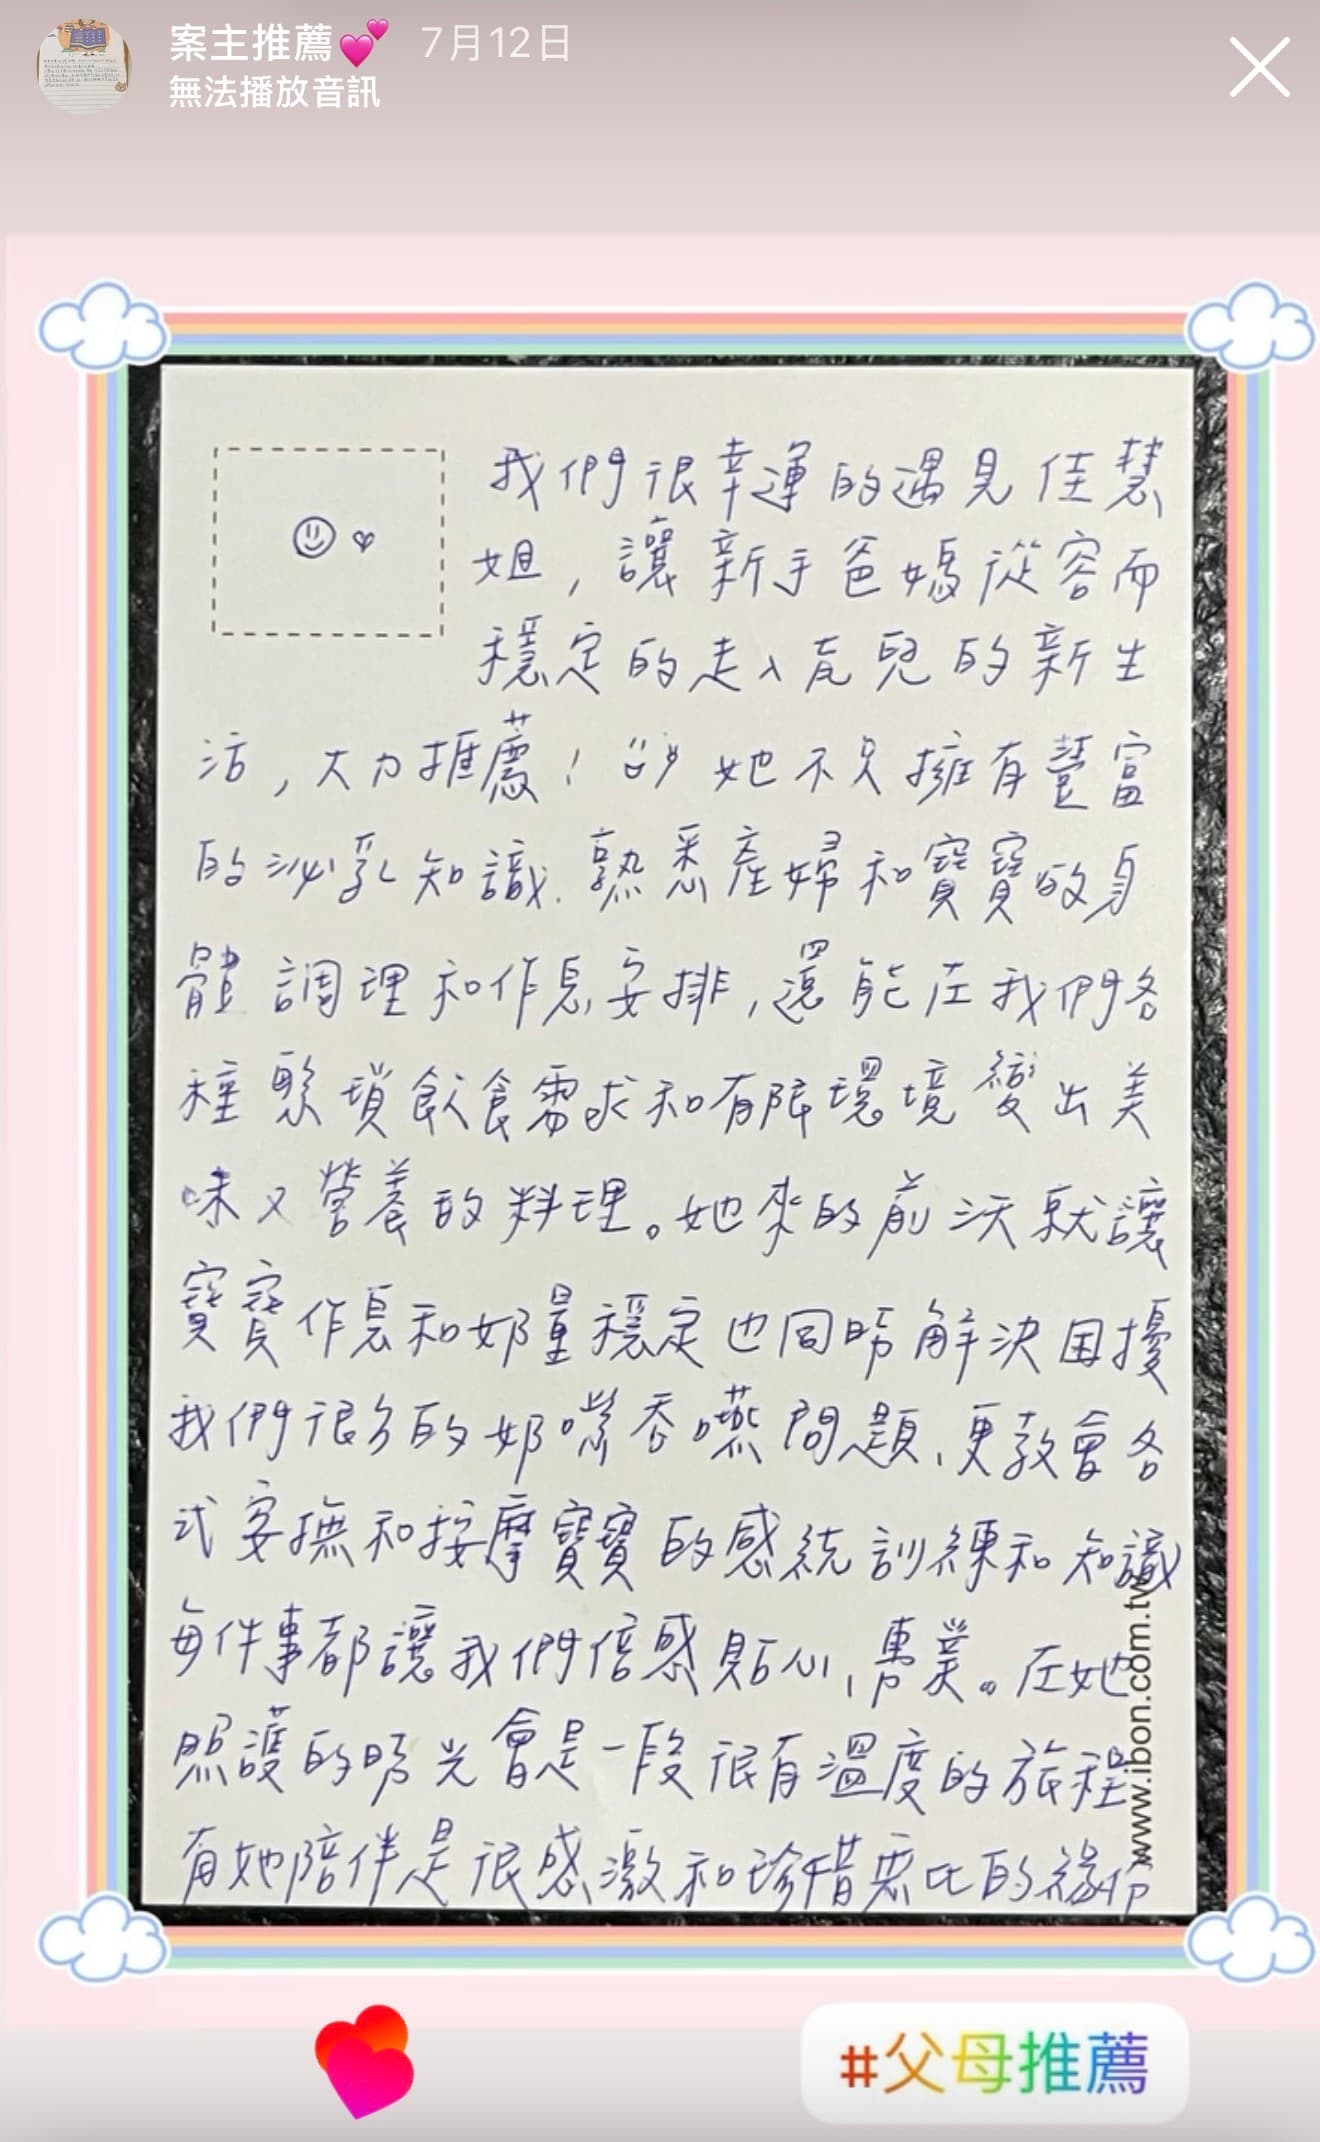 案主推薦💕 7月12日
無法播放音訊
我們很幸運的遇見佳慧
姐，讓新手爸媽從容而
穩定的走入育兒的新生
活，大力推薦！她不只擁有豐富
的泌乳知識、熟悉產婦和寶寶的身
體調理和作息安排，還能在我們各
種繁瑣飲食需求和有限環境變出美
味又營養的料理。她來的前三天就讓
寶寶作息和奶量穩定也同時解決困擾
我們很久的奶嘴吞嚥問題、更教會各
式安撫和按摩寶寶的感統訓練和知識
每件事都讓我們倍感貼心、專業。在她
照護的時光會是一段很有溫度的旅程
有她陪伴是很感激和珍惜無比的緣份
www.ibon.com.tw
#父母推薦